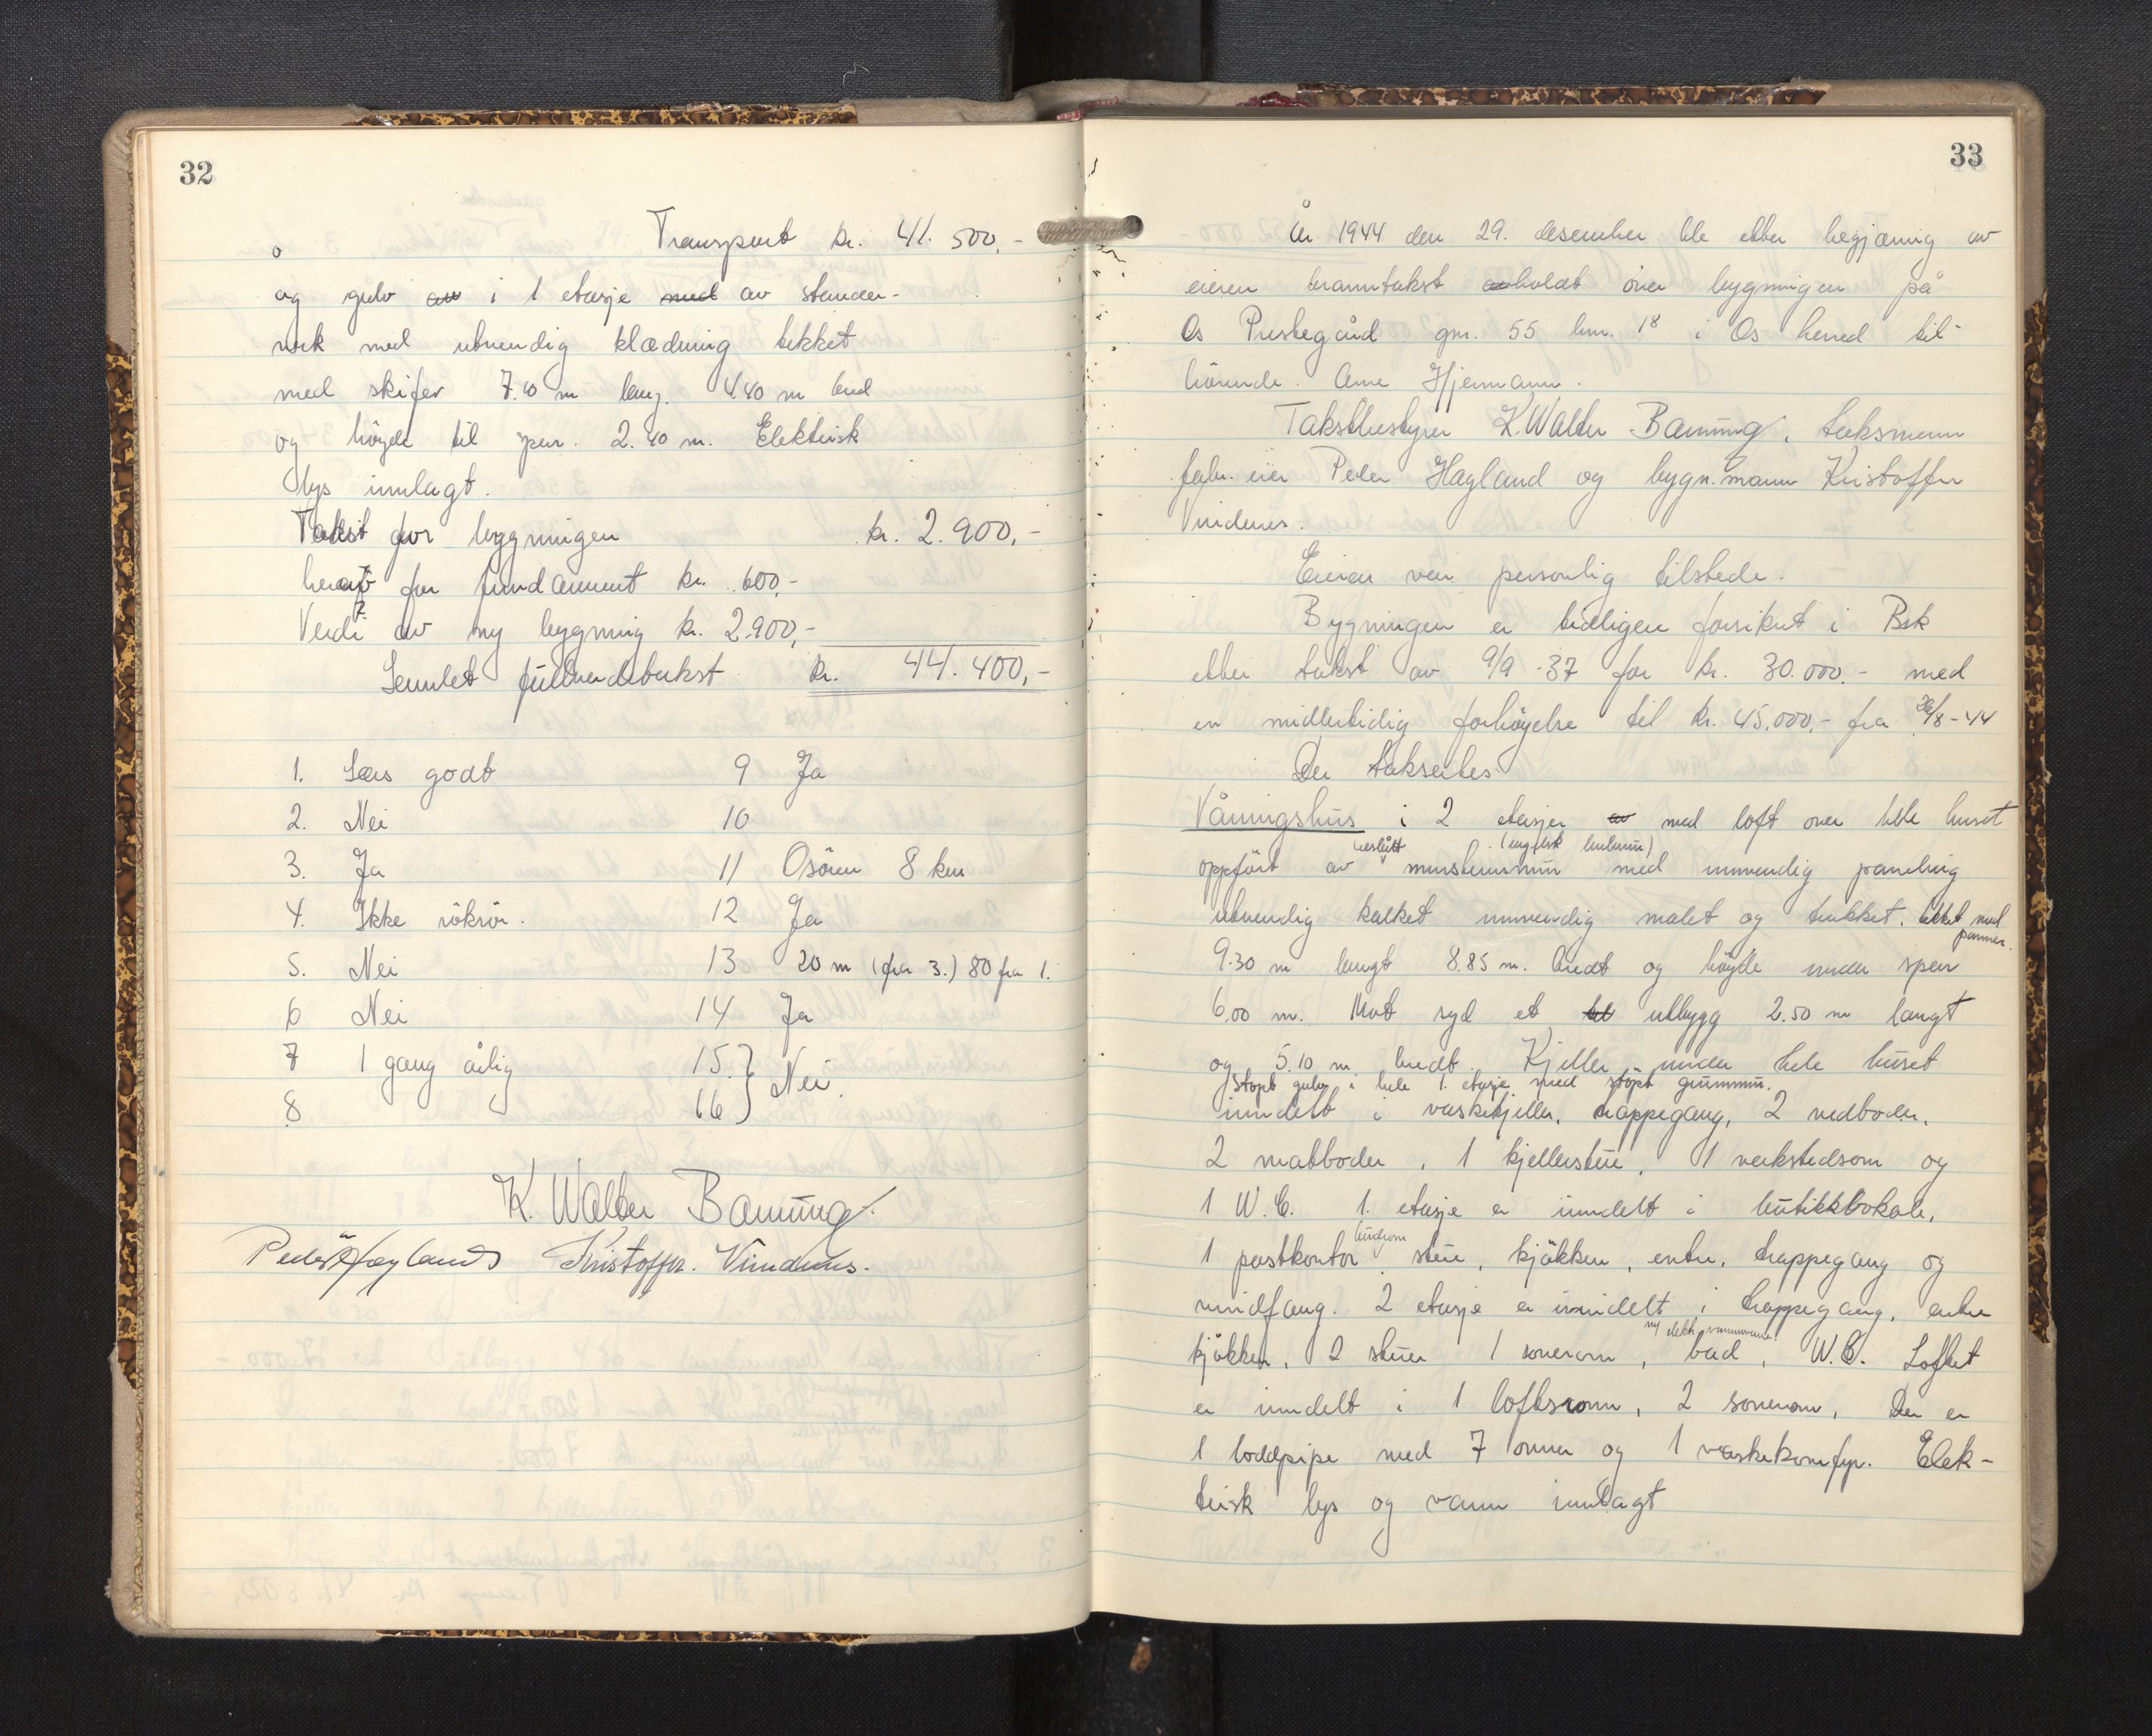 32
Transport kr. 41.500,-
og gulv av i 1 etasje med av stender-
verk med utvendig klædning tekket
med skifer 7.40 m lang. 4.40 m bred
og höyde til sper. 2.40 m. Elektrisk
lys innlagt.
Takst for bygningen kr. 2.900,-
herav for fundament kr. 600,-
Verdi av ny bygning kr. 2.900,-
Samlet fullverditakst kr. 44.400,-
1. Læs godt 9 Ja
2. Nei 10
3. Ja 11 Osören 8 km
4. Ikke rökrör. 12 Ja
5. Nei 13 20 m (fra 3.) 80 fra 1.
6 Nei 14 Ja
7 1 gang årlig 15. } Nei.
8 16
K. Walter Banning.
Peder Hagland Kristoffer Vindenes.
33
År 1944 den 29. desember ble etter begjæring av
eieren branntakst avholdt over bygningen på
Os Prestegård gnr. 55 bnr. 18 i Os herred til-
hörende. Arne Hjermann.
Takstbestyrer K. Walter Banning, taksmenn
fabr. eier Peder Hagland og bygn.mann Kristoffer
Vindenes.
Eieren var personlig tilstede.
Bygningen er tidligere forsikret i Bsk
etter takst av 9/9-37 for kr. 30.000.- med
en midlertidig forhöyelse til kr. 45.000,- fra 26/8-44
Der takseres:
Våningshus i 2 etasjer av med loft over hele huset
(engelsk hulmur)
oppfört av murstensmur med innvendig paneling
utvendig kalket innvendig malet og trukket. tekket med
panner.
9.30 m langt 8.85 m. bredt og höyde under sper
6,00 m. Mot syd et utbygg 2.50 m langt
og 5.10 m bredt. Kjeller under hele huset
Stöpt gulv i hele 1. etasje med stöpt grunnmur.
inndelt i vaskekjeller, trappegang, 2 vedboder,
2 matboder, 1 kjellerstue, 1 verkstedsom og
1 W.C. 1. etasje er inndelt i butikklokale,
budrom
1 postkontor, stue, kjökken, entre, trappegang og
vindfang. 2 etasje er inndelt i trappegang, entre
ny elektr.
kjökken, 2 stuer 1 soverom, bad, W.C. Loftet
er inndelt i 1 loftsrom, 2 soverom, Der er
1 loddpipe med 7 ovner og 1 vaskekomfyr. Elek-
trisk lys og vann innlagt